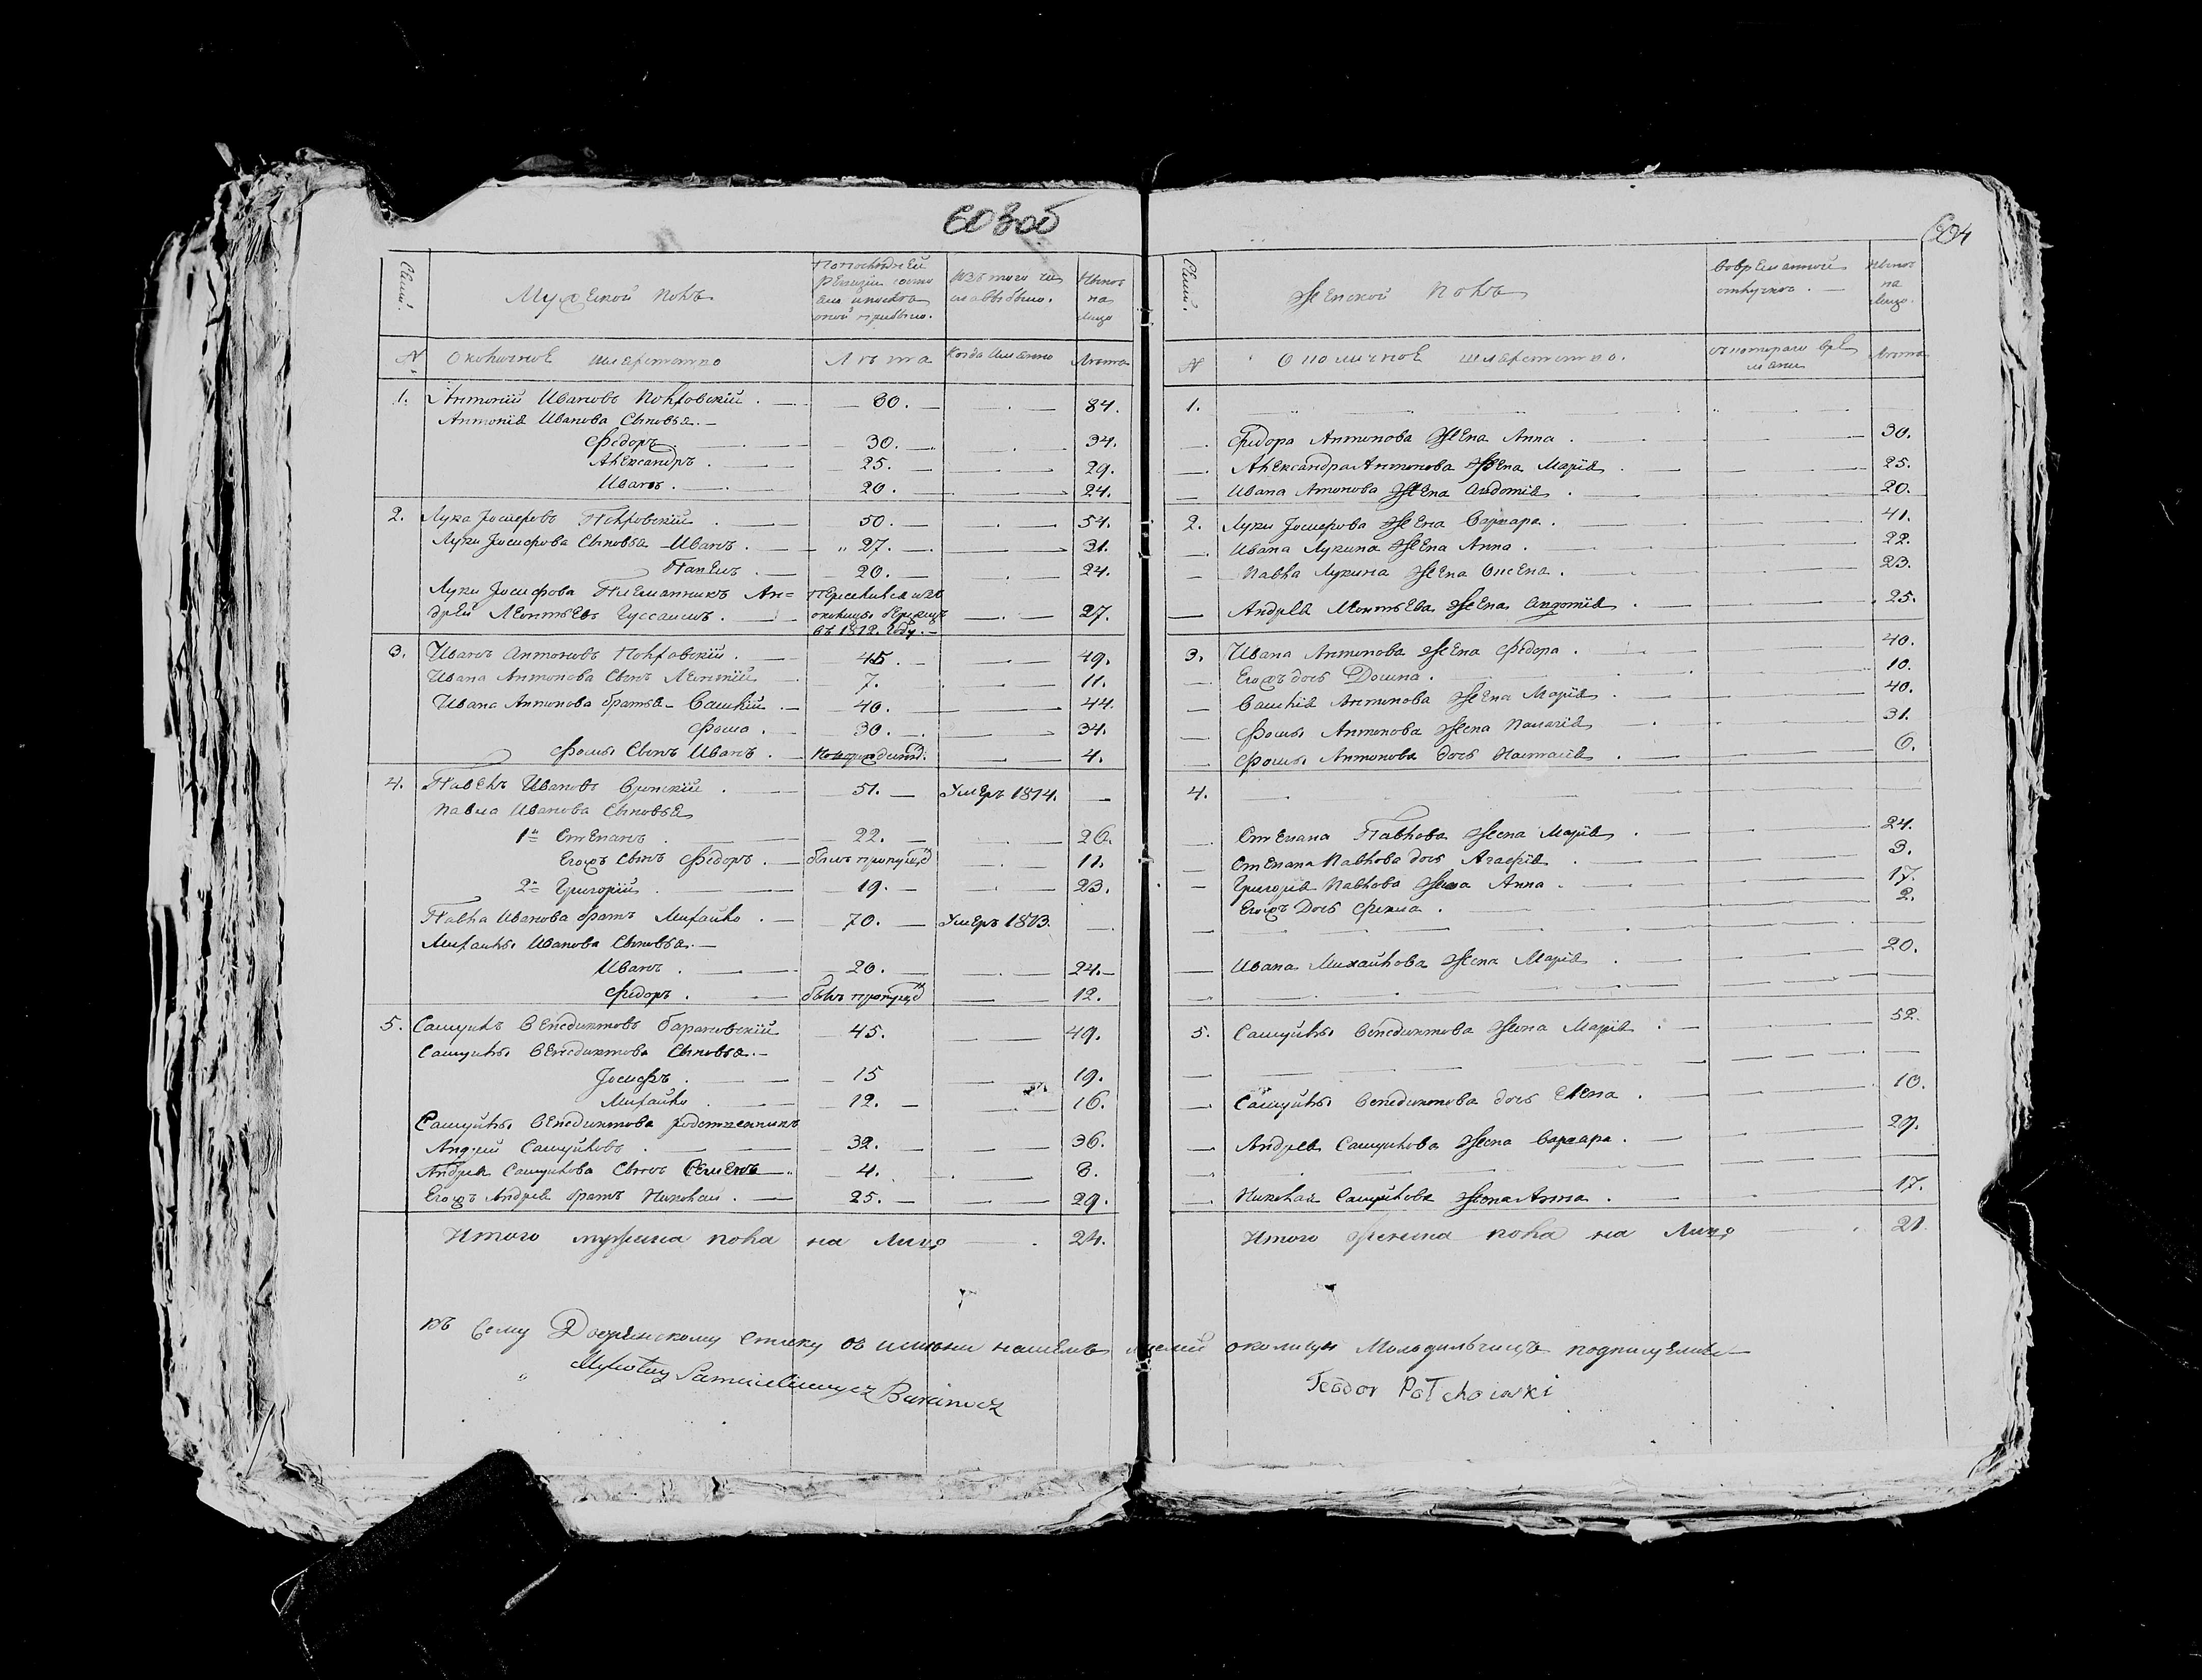 603об
Семьи.
Мужеской полъ
По последней ревизіи состояло и после оной прибыло.
Изъ того числа выбыло.
Ныне на лицо
№
Околичное шляретство
Лѣта
Когда имянно
Лѣта
1. Антоній Ивановъ Полховскій . — 80. — — 84.
Антонія Иванова Сыновья. —
Федоръ . — 30. — — 34.
Александръ . — 25. — — 29.
Иванъ . — 20. — — 24.
2. Лука Іосиѳовъ Полховскій . — 50. — — 54.
Луки Іосифова Сыновья Иванъ . — 27. — — 31.
Павелъ . — 20. — — 24.
Луки Іосифова Племянникъ Ан= Переселился изъ
дрей Леонтьевъ Гуссаимъ . — околицы — 27.
въ 1812. году. —
3. Иванъ Антоновъ Полховскій . — 45. — — 49.
Ивана Антонова Сынъ Леонтій — 7. — — 11.
Ивана Антонова братья Василій . — 40. — — 44.
Фома . — 30. — — 34.
Фомы Сынъ Иванъ . — Новорожденный. — 4.
4. Павелъ Ивановъ — 51. — Умеръ 1814. —
Павла Иванова Сыновья
1й Степанъ . — 22. — — 26.
Егожъ Сынъ Федоръ . — былъ пропущ. — 11.
2й Григорій . — 19. — — 23.
Павла Иванова братъ Михайло . — 70. — Умеръ 1813. —
Михайлы Иванова Сыновья. —
Иванъ . — 20. — — 24. —
Федоръ . — былъ пропущ. — 12.
5. Самуилъ Венедиктовъ Барановскій 45. — 49.
Самуйлы Венедиктова Сыновья. —
Іосифъ . — 15 — 19.
Михайло . — 12. — — 16.
Самуйлы Венедиктова родственникъ
Андрей Самуйловъ . — 32. — — 36.
Андрея Самуйлова Сынъ Семенъ — 4. — 8.
Егожъ Андрея братъ Николай . — 25. — — 29.
Итого мужеска пола на лицо — . 24.
604
Семьи.
Женской полъ
Вовременной отлучке . —
Ныне на лицо.
№
Околичное шляретство.
Съ котораго времяни
Лѣта
1. — —
— Федора Антонова Жена Анна . — — 30.
— Александра Антонова Жена Марія . — — 25.
— Ивана Антонова Жена Авдотія . — — 20.
2. Луки Іосифова Жена Варвара . — — 41.
— Ивана Лукина Жена Анна . — — 22.
— Павла Лукина Жена Оксена . — — 23.
— Андрея Леонтьева Жена Авдотія . — — 25.
3. Ивана Антонова Жена Федора . — — 40.
— Егожъ дочь Домна . — — 10.
— Василія Антонова Жена Марія . — — 40.
— Фомы Антонова Жена Палагія — — 31.
— Фомы Антонова дочь Настасія . — — 6.
4. — —
— Степана Павлова Жена Марія . — — 24.
— Степана Павлова дочь Агафія . — — 3.
— Григорія Павлова Жена Анна . — — 17.
Егожъ Дочь Фекла . — — 2.
— — —
— Ивана Михайлова Жена Марія . — — 20.
— — —
5. Самуйлы Венедиктова Жена Марія . — — 52.
— — —
— Самуйлы Венедиктова дочь Елена . — — 10.
— Андрея Самуйлова Жена Варвара . — — 29.
— — —
— Николая Самуйлова Жена Анна . — — 17.
Итого Женска пола на лицо — . 21.
Къ Сему Дворянскому Списку околицы подписуемся —
Samuelowycz
Teodor Połchowski